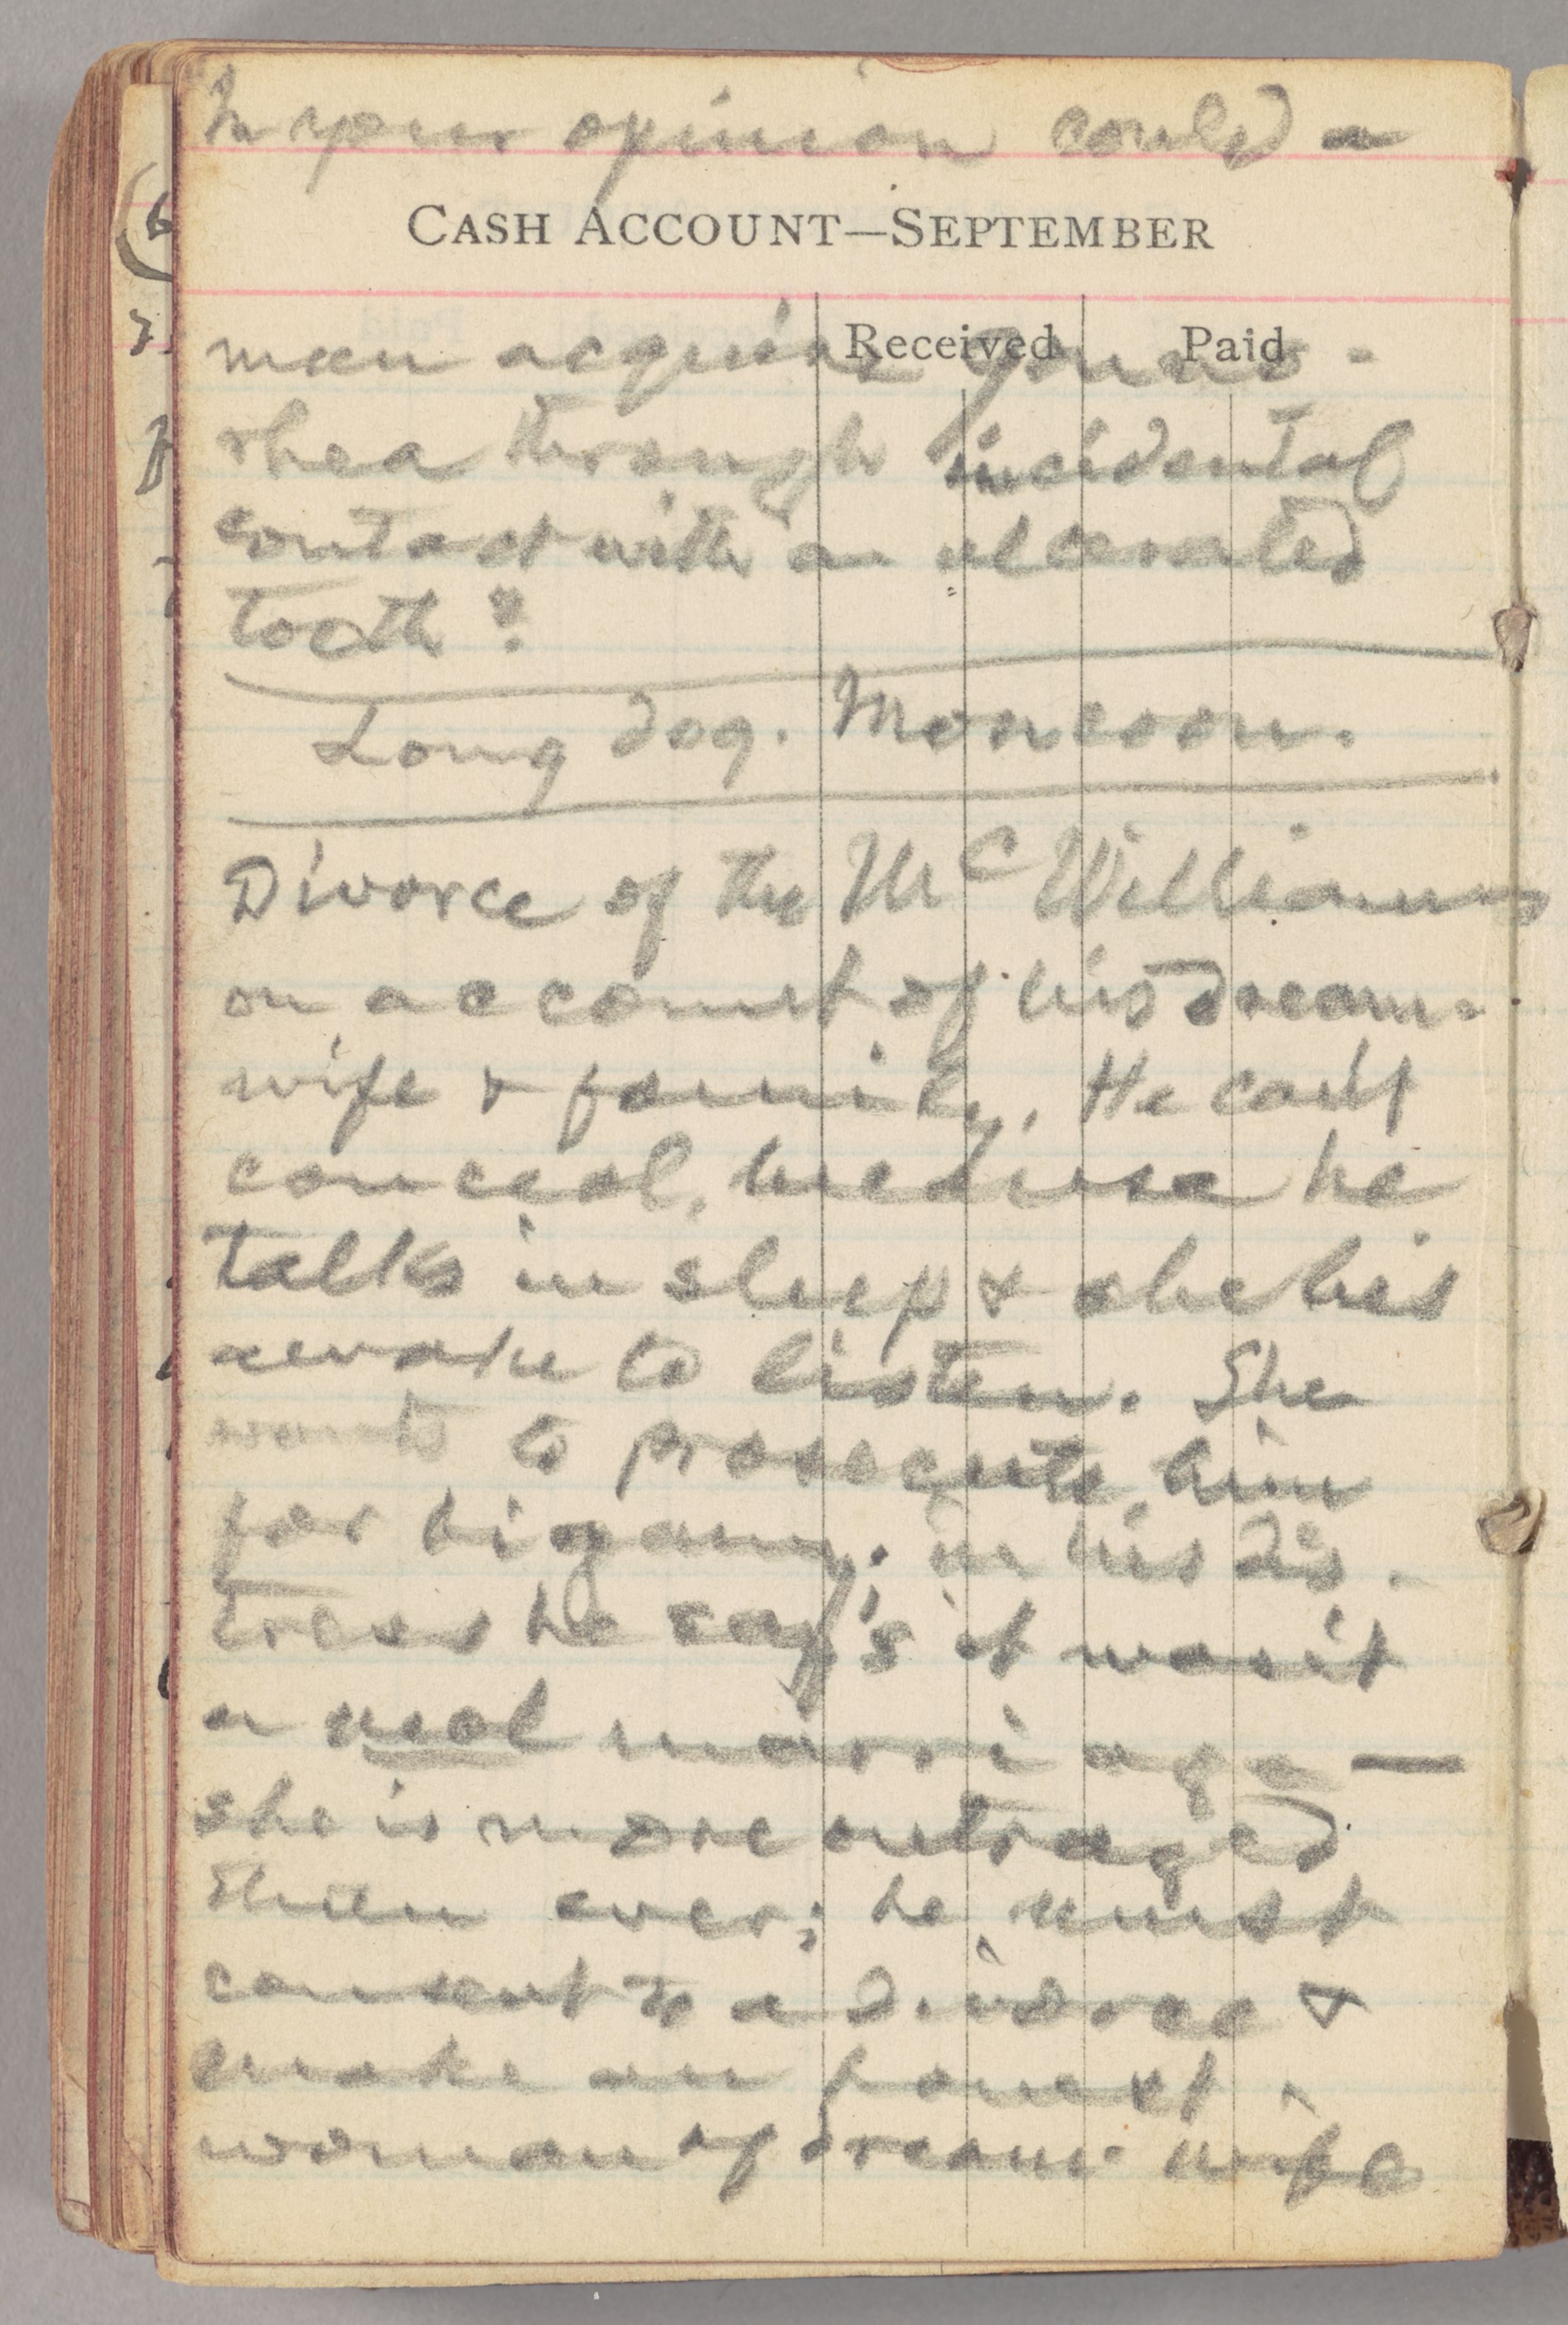 "In your opinion could a
CASH ACCOUNT—SEPTEMBER
Received Paid
man acquire gonor-
rhea through incidental
contact with an ulcerated
tooth?"
Long dog. Monsoon.
Divorce of the McWilliamses
on account of his dream-
wife & family. He can't
conceal, because he
talks in sleep & she lies
awake to listen. She
wants to prosecute him
for bigamy; in his dis-
tress he says it wasn't
a real marriage —
she is more outraged
than ever; he must
consent to a divorce &
make an honest
woman of dream-wife